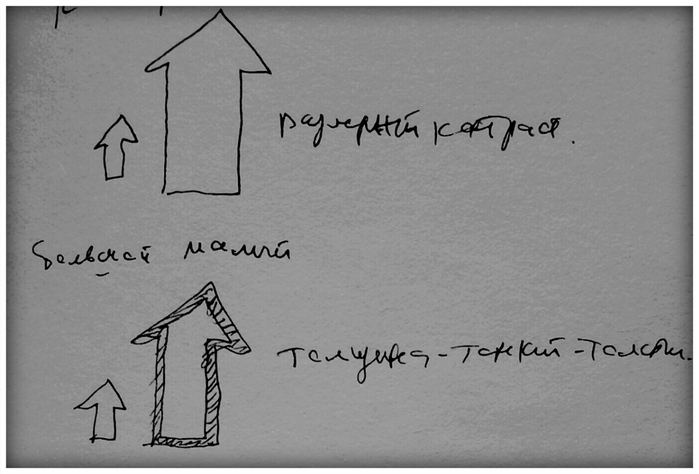 размерный контраст.
большой малый
толщина-тонкий-толсты.